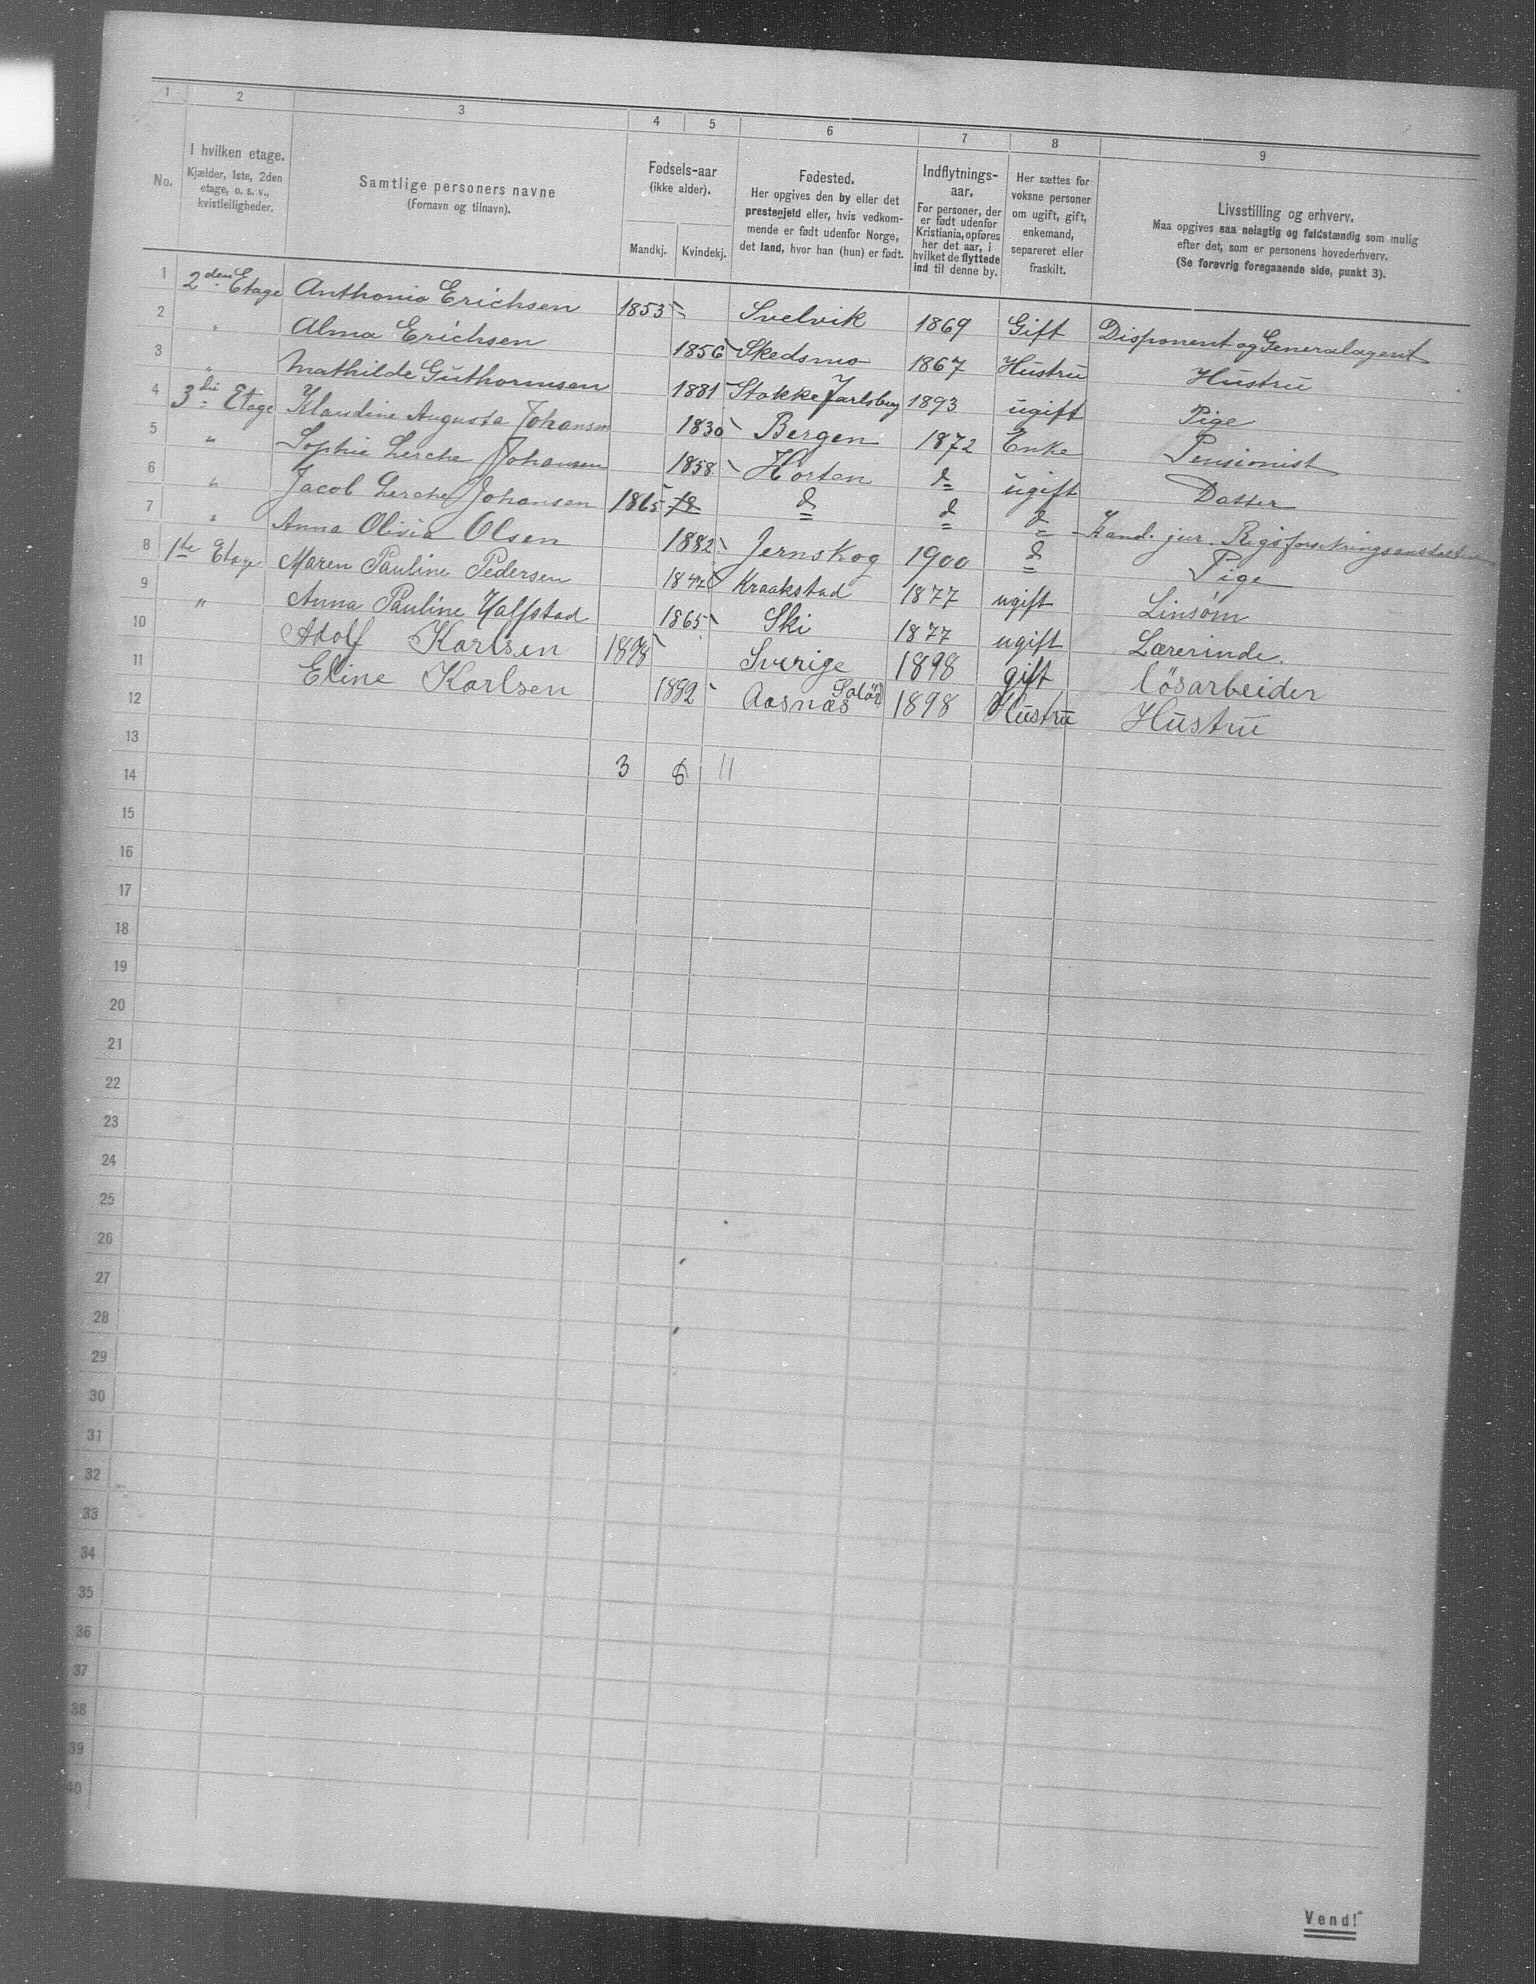 1 2 3 4 5 6 7 8 9
No.
I hvilken etage.
Kjælder, 1ste, 2den
etage, o. s. v.,
kvistleiligheder.
Samtlige personers navne
(Fornavn og tilnavn).
Fødsels-aar
(ikke alder).
Mandkj. Kvindekj.
Fødested.
Her opgives den by eller det
prestegjeld eller, hvis vedkom-
mende er født udenfor Norge,
det land, hvor han (hun) er født.
Indflytnings-
aar.
For personer, der
er født udenfor
Kristiania, opføres
her det aar, i
hvilket de flyttede
ind til denne by.
Her sættes for
voksne personer
om ugift, gift,
enkemand,
separeret eller
fraskilt.
Livsstilling og erhverv.
Maa opgives saa nøiagtig og fuldstændig som mulig
efter det, som er personens hovederhverv.
(Se forøvrig foregaaende side, punkt 3).
1 2den Etage Anthonio Erichsen 1853 Svelvik 1869 Gift Disponent og Generalagent
2 " Alma Erichsen 1856 Skedsmo 1867 Hustru Hustru
3 " Mathilde Guthormsen 1881 Stokke Jarlsberg 1893 ugift Pige
4 3die Etage Klaudine Augusta Johansen 1830 Bergen 1872 Enke Pensionist
5 " Sophie Lerche Johansen 1858 Horten d ugift Datter
6 " Jacob Lerche Johansen 1865 d d d Kand. jur. Rigsforsikringsanstalten
7 " Anna Olivia Olsen 1882 Jernskog 1900 d Pige
8 1ste Etage Maren Pauline Pedersen 1847 Kraakstad 1877 ugift Linsøm
9 " Anna Pauline Halfstad 1865 Ski 1877 ugift Lærerinde.
10 Adolf Karlsen 1878 Sverige 1898 gift løsarbeider
11 Eline Karlsen 1882 Aasnæs Solör 1898 Hustru Hustru
12
13
14 3 8 11
15
16
17
18
19
20
21
22
23
24
25
26
27
28
29
30
31
32
33
34
35
36
37
38
39
40
Vend!